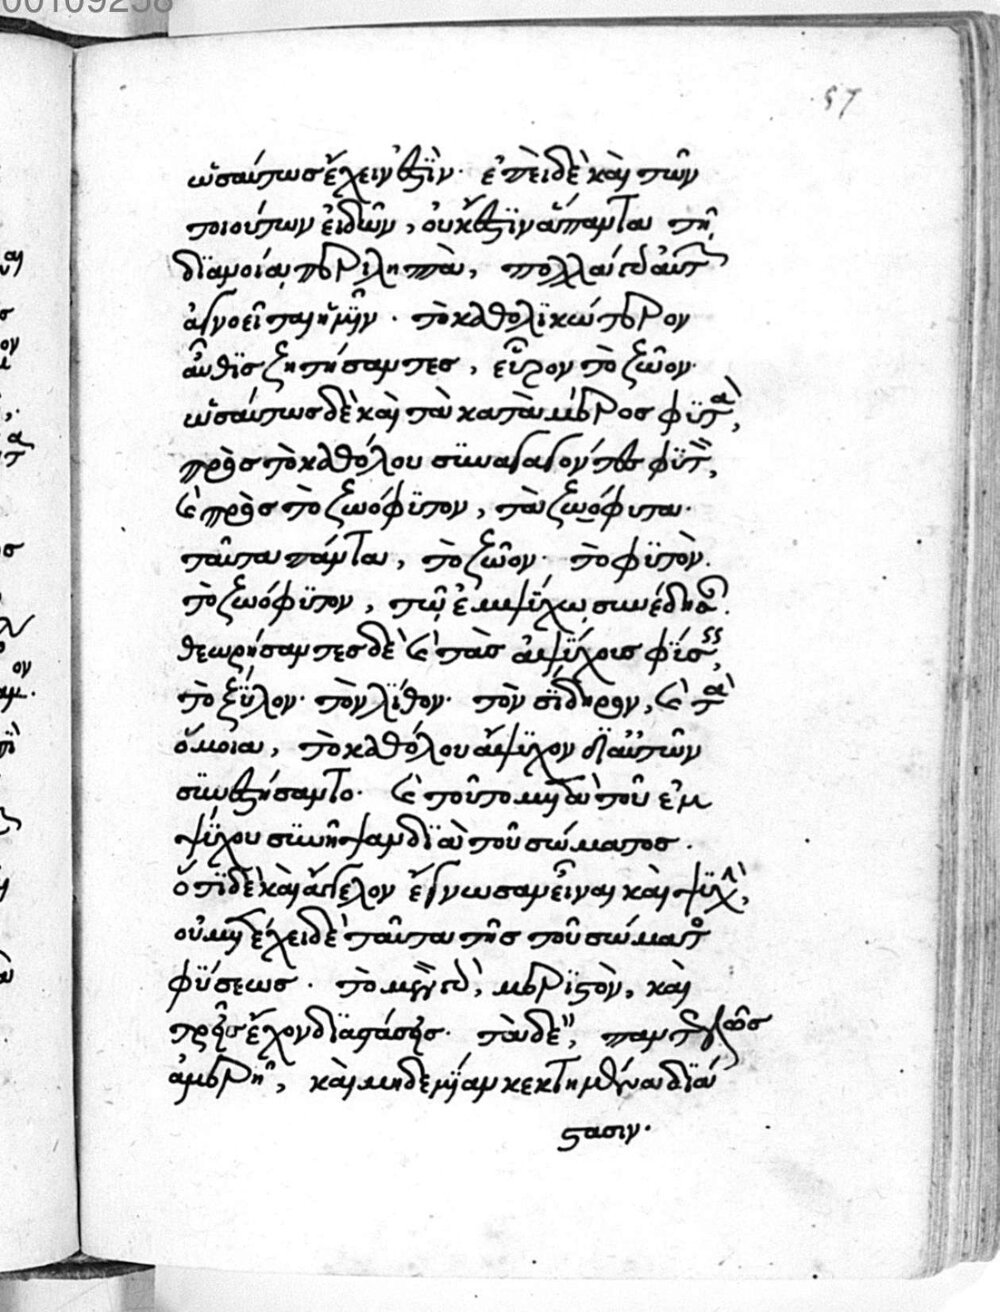 00109258
57
ὡσαύτως ἔχειν ἐξὸν· ἐπεὶ δὲ καὶ τῶν
τοιούτων εἰδῶν, οὐκ ἔξϊν ἅπαντα τῇ
διανοίᾳ περιληπτὰ, πολλὰ
ἀγνοεῖται ἡμῖν· τὸ καθολϊκώτερον
αὖθϊς ζητήσαντες, εὗρον τὸ ζῶον·
ὡσαύτως δὲ καὶ τὰ κατὰ μέρος φϋτὰ,
πρὸς τὸ καθόλου σϋναγαγόντες φϋτ,
καὶ πρὸς τὸ ζωόφϋτον, τὰ ζωόφυτα·
ταῦτα πάντα, τὸ ζῶον· τὸ φϋτὸν.
τὸ ζωόφϋτον, τῷ ἐμψύχῳ συνέδησαν.
θεωρήσαντες δὲ καὶ τὰς ἀψύχοις φύσεις,
τὸ ξύλον· τὸν λίθον· τὸν σίδηρον, καὶ τὰ
ὅμοια, τὸ καθόλου ἄψϋχον δϊ αὐτῶν
σϋνεζήσαντο· καὶ τοῦτο μετὰ τοῦ ἐμ
ψύχου σϋνῆψαν δϊὰ τοῦ σώματος.
ὅτϊ δὲ καὶ ἄγγελον ἔγνωσαν εἶναι καὶ ψϋχὴν,
οὐ μετέχει δὲ ταῦτα τῆς τοῦ σώματος
φύσεως. τὸ μὲν γὰρ, μερϊστὸν, καὶ
τρεῖς ἔχον δϊαστάσεις· τὰ δὲ, παντελῶς
ἀμερῆ, καὶ μηδεμίαν κεκτημένα δϊά
στασιν.